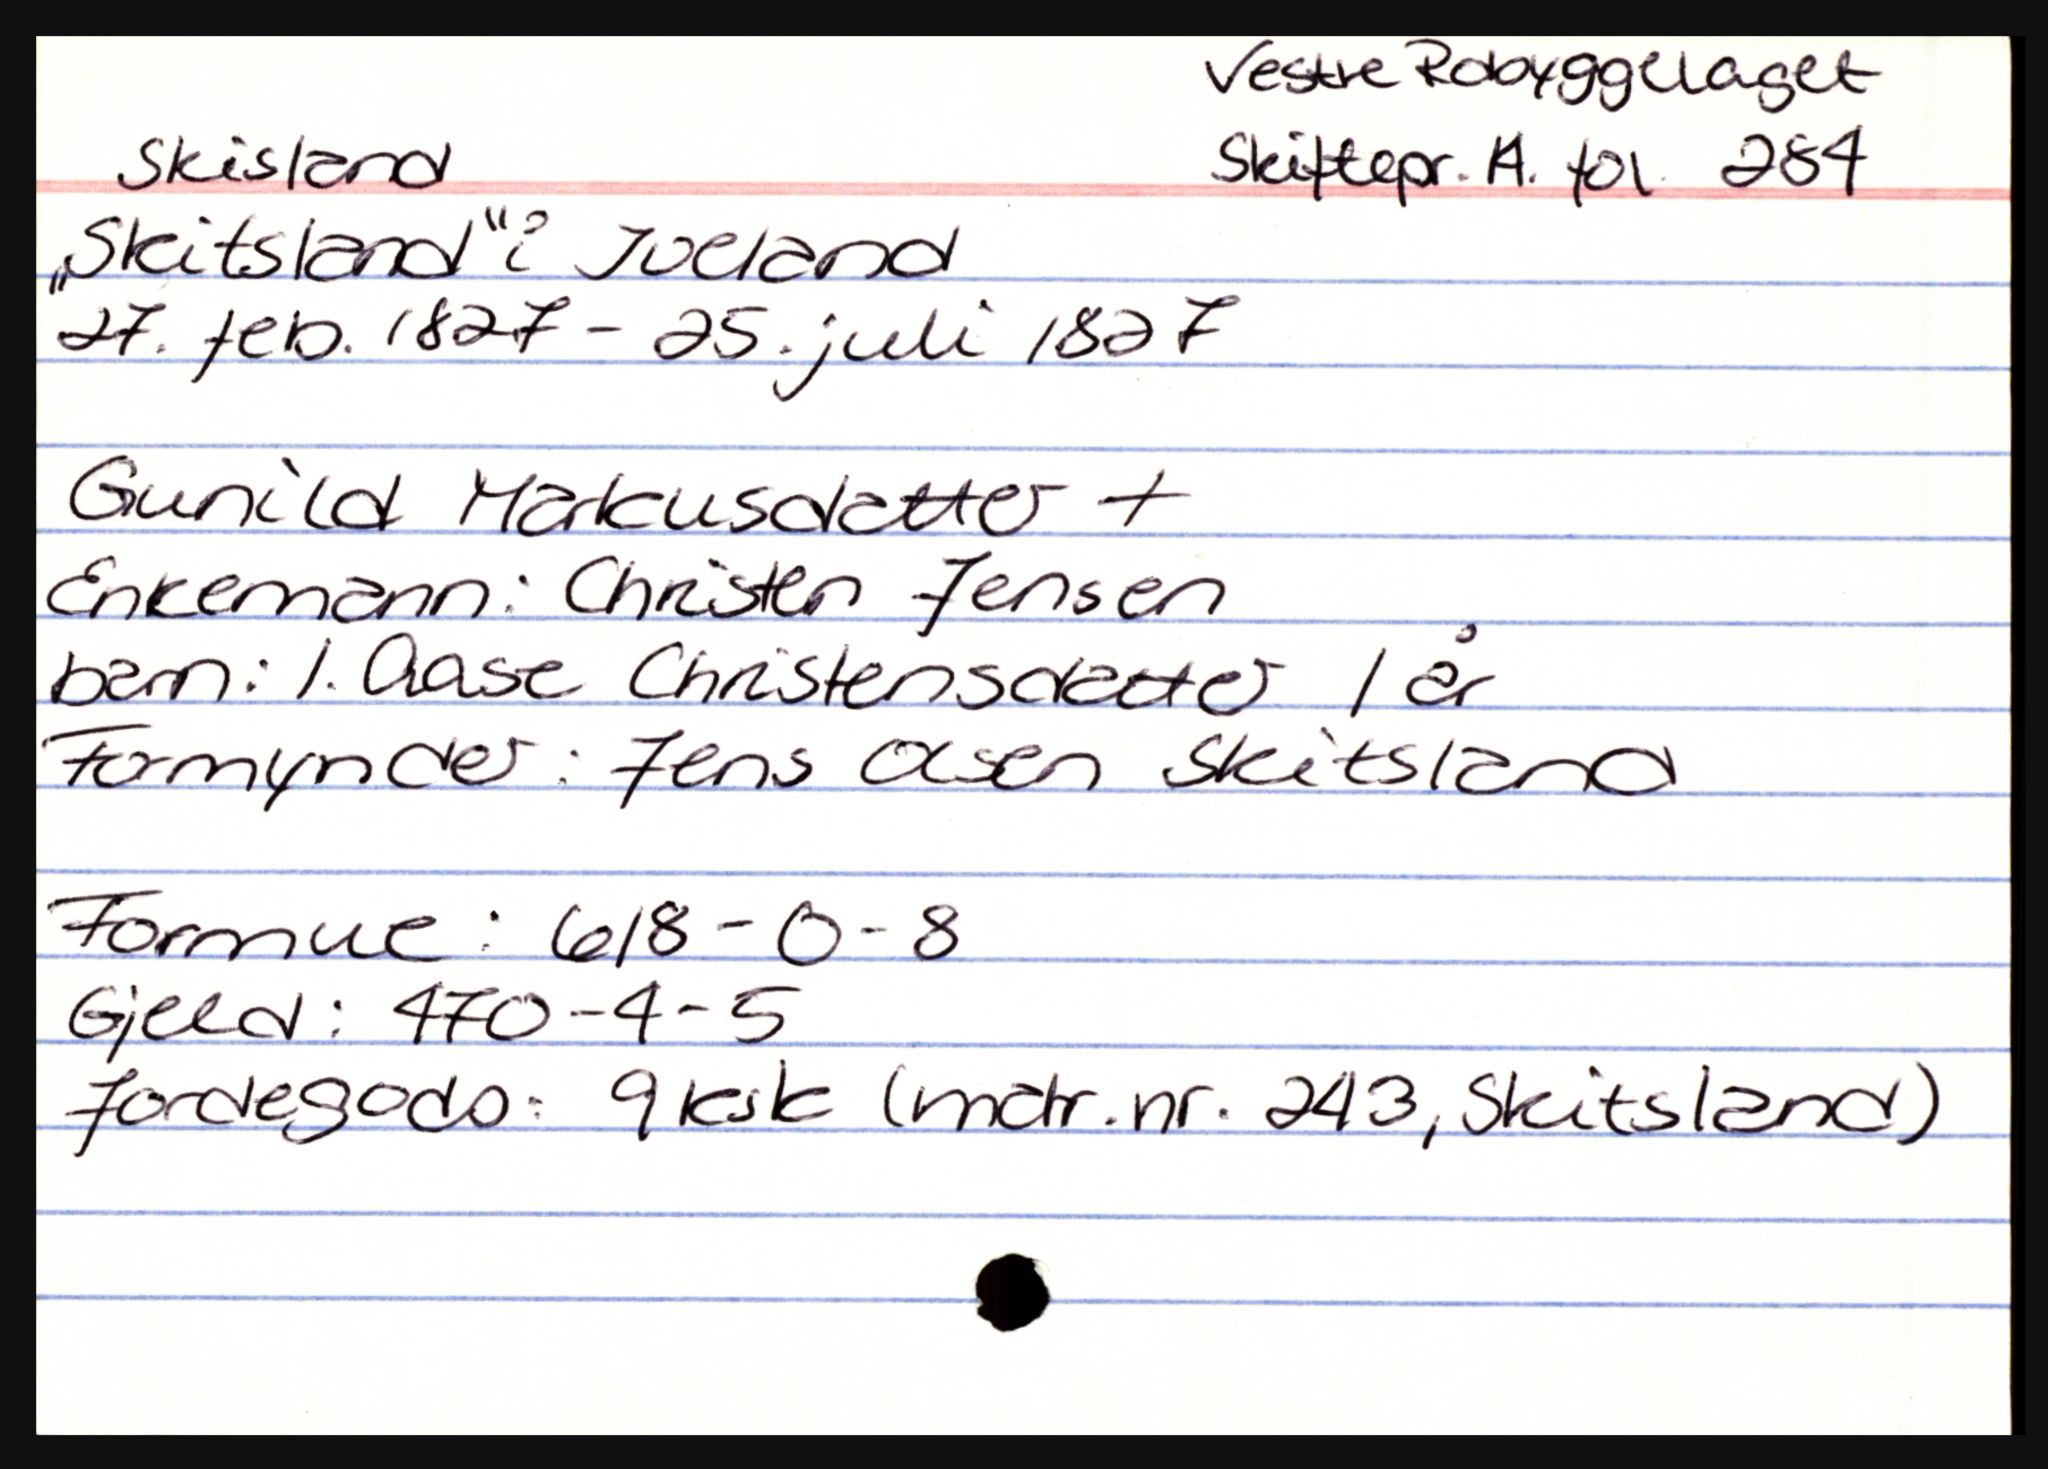 Vestre Robyggelaget
Skisland
Skiftepr. A. fol. 284
„Skitsland“ i Iveland
27. feb. 1827 - 25. juli 1827
Gunild Markusdatter +
Enkemann: Christen Jensen
barn: 1. Aase Christensdatter 1 år
Formynder: Jens Olsen Skitsland
Formue: 618-0-8
Gjeld: 470-4-5
Jordegods: 9 ksk (matr.nr. 243, Skitsland)